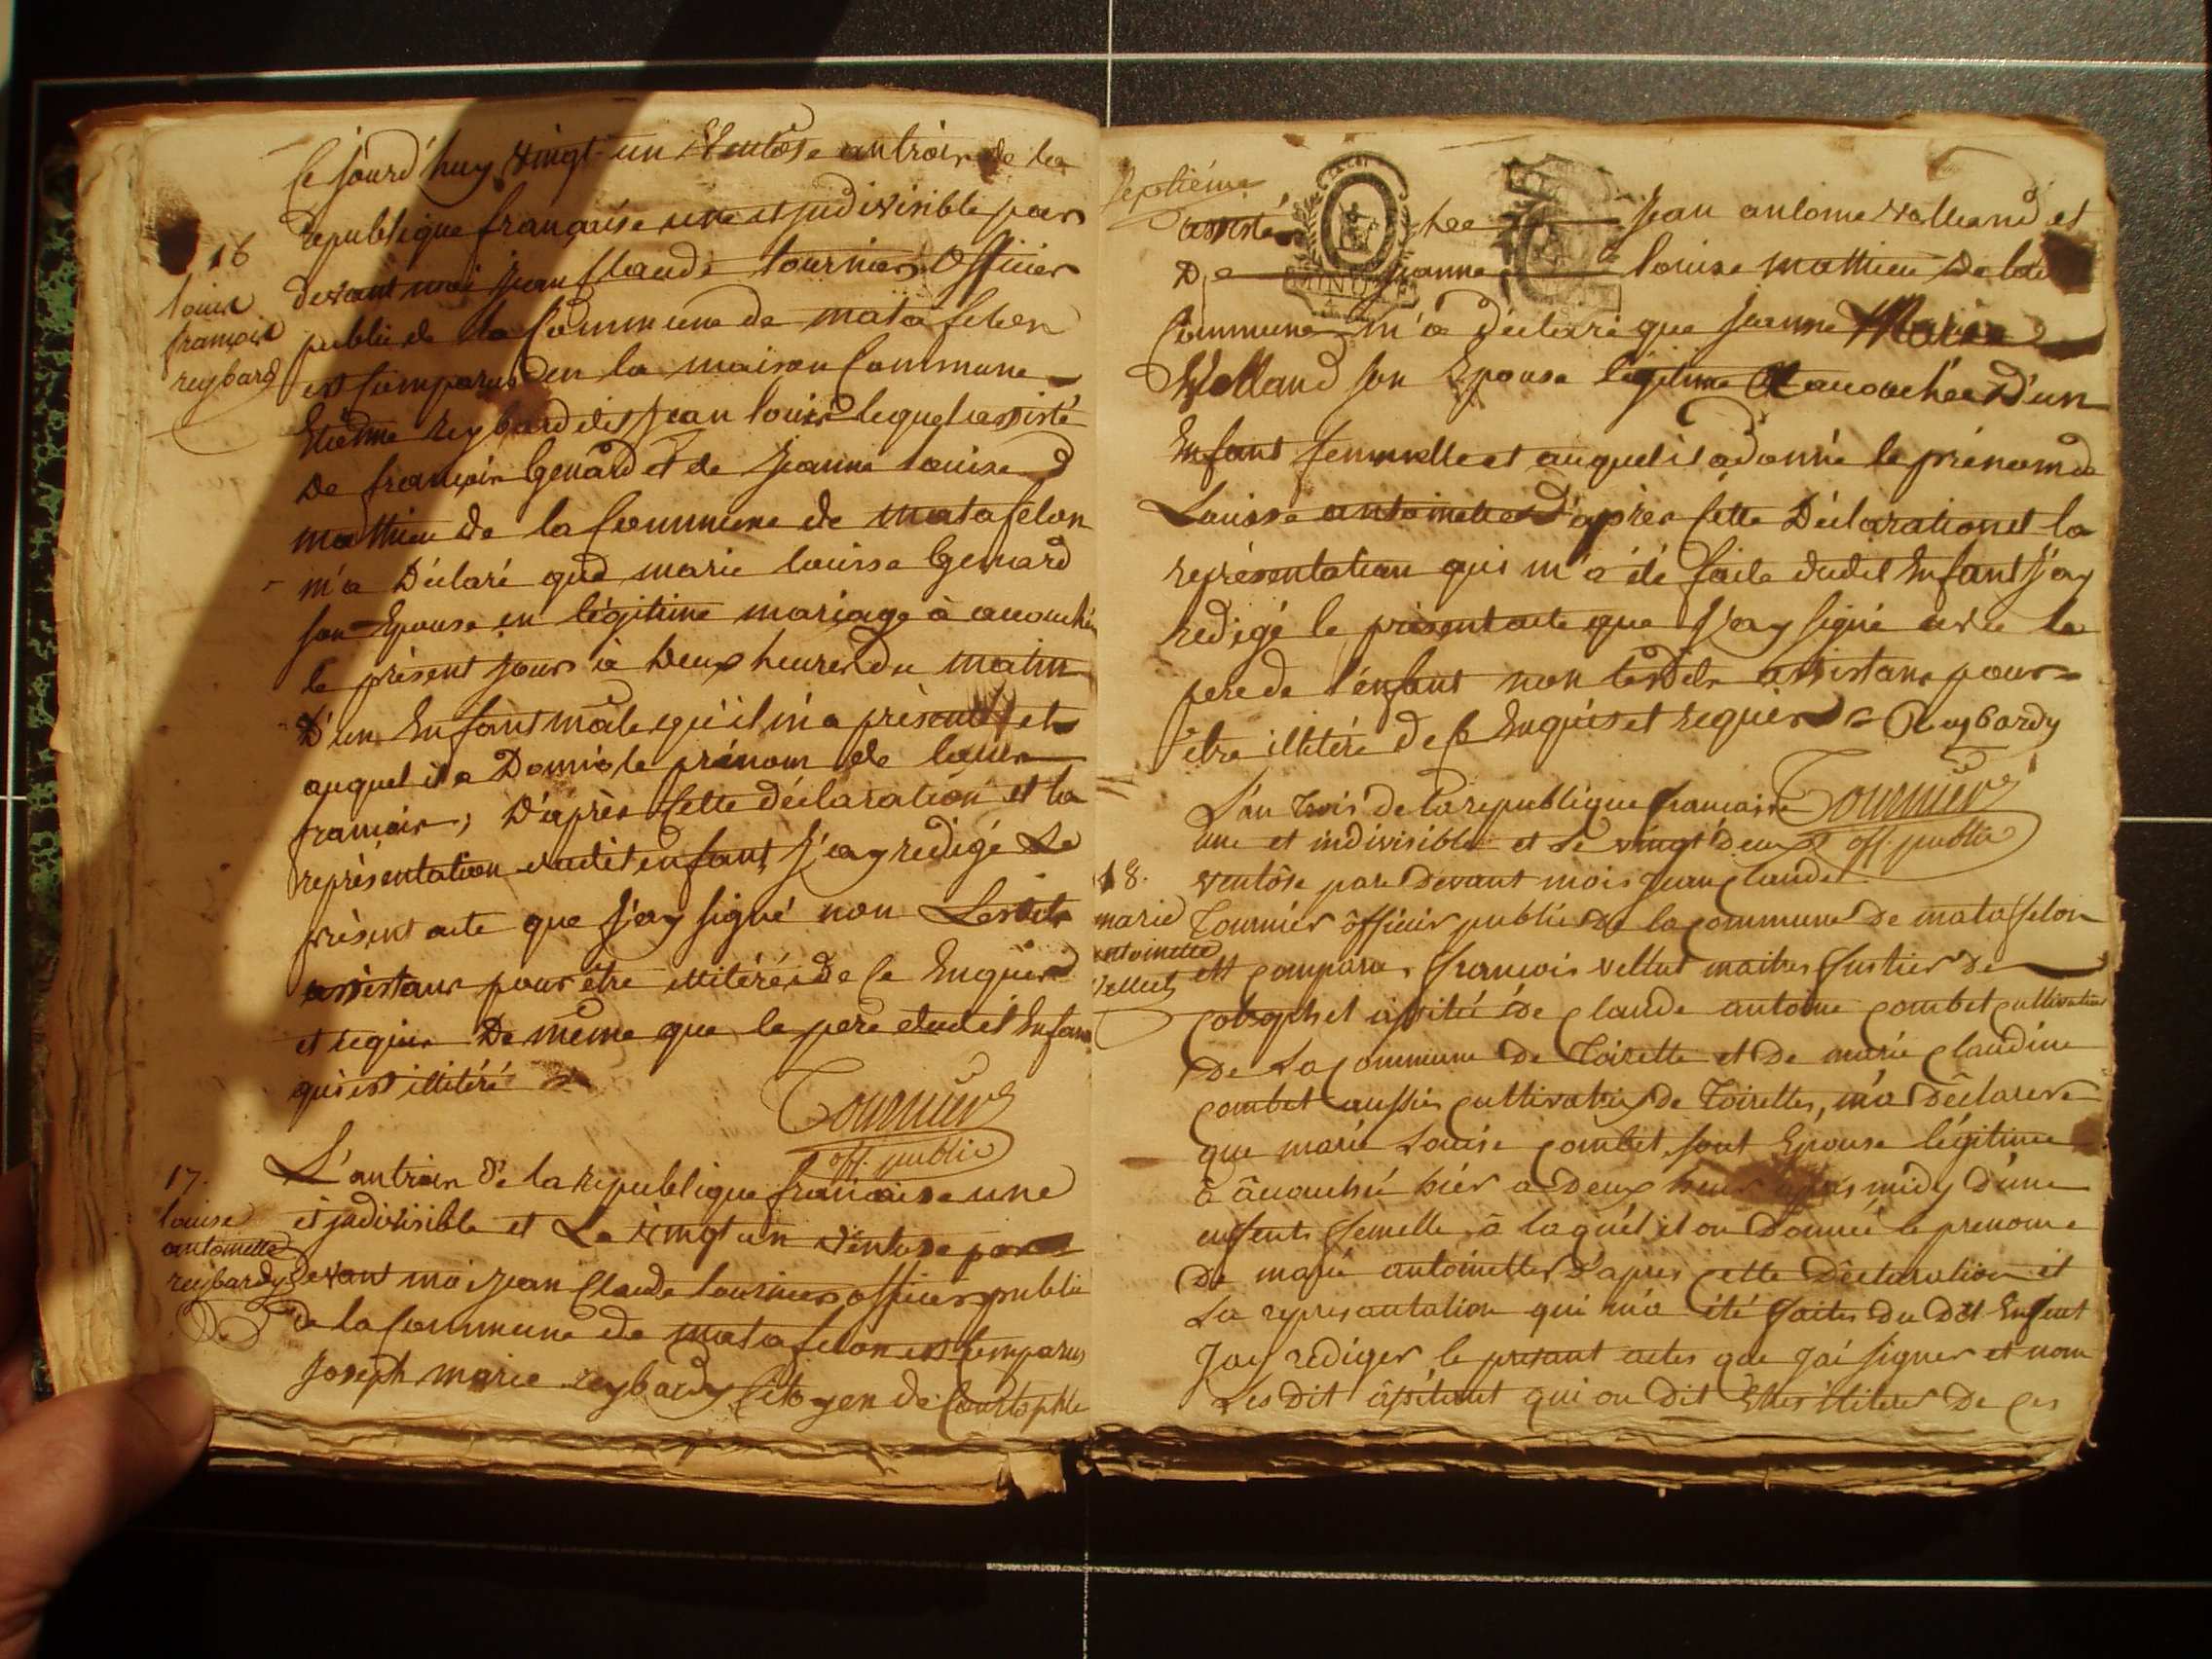 Ce jourd'huy vingt un Ventôse an trois de la
republique française une et jndivisible par
devant moi jean Claude tournier Officier
16
public de la Commune de matafelon
louis
françois
reybard
est Comparus en la maison Commune
Etienne reybard dit jean louis lequel assisté
De françois Genard et de jeanne louise
mathieu de la Commune de matafelon
m'a Déclaré que marie louise Genard
son Epouse en légitime mariage à acouchée
le présent jour à Deux heures du matin
D'un Enfant mâle qu'il m'a présenté et
auquel il a Donné le prénom de louis
françois ; D'après Cette déclaration et la
représentation dudit enfant j'ay redigé Le
présent acte que j'ay signé non Lesdits
assistans pour être illitérés de Ce Enquis
et requis De même que le pere dudit Enfant
qui est illitéré
Tournier
off. public
17.
louise
antoinette
reybardy
L'an trois de la republique française une
et jndivisible et Le vingt un ventose par
devant moi jean Claude tournier officier public
de la Commune de matafelon est Comparus
Joseph marie reybardy Citoyen de
septiéme
assisté jean antoine volland et
De jeanne louise mathieu De lad
Commune m'a déclaré que jeanne Marie
Volland son Epouse légitime acouchée D'un
Enfant femmelle et auquel il a donné le prénom de
Louise antoinette D'après Cette Déclaration et la
représentation qui m'a été faite dudit Enfant j'ay
redigé le présent acte que j'ay signé avec le
pere de l'énfant non lesdits assistans pour
être illitéré de Ce Enquis et requis Reybardy
Tournier
off. public
L'an trois de la republique française
une et indivisible et Le vingt deux
18.
marie
antoinette
Vellut
ventôse pare Devant mois jean Claude
Tournier officier public De la Commune De matafelon
est Comparus françois vellut maitre De
assité De Claude antoine Combet Cultivateur
De La Commune De Toirette et De marie Claudine
Combet aussie De Toirettes, m'a Déclarere
que marie Louise Combet sont Epouse légitime
à âcouchée hiér a Deux heur apres midy D'une
enfent femelle à laquél il on Donnée le prenome
De marie antoinettes D'apres Cette Déclaration et
La represantation qui m'a été faites Du Dit Enfent
Jay rédiger le presant actes que J'ai signer et nom
Les Dit âssitant qui on Dit De Ces